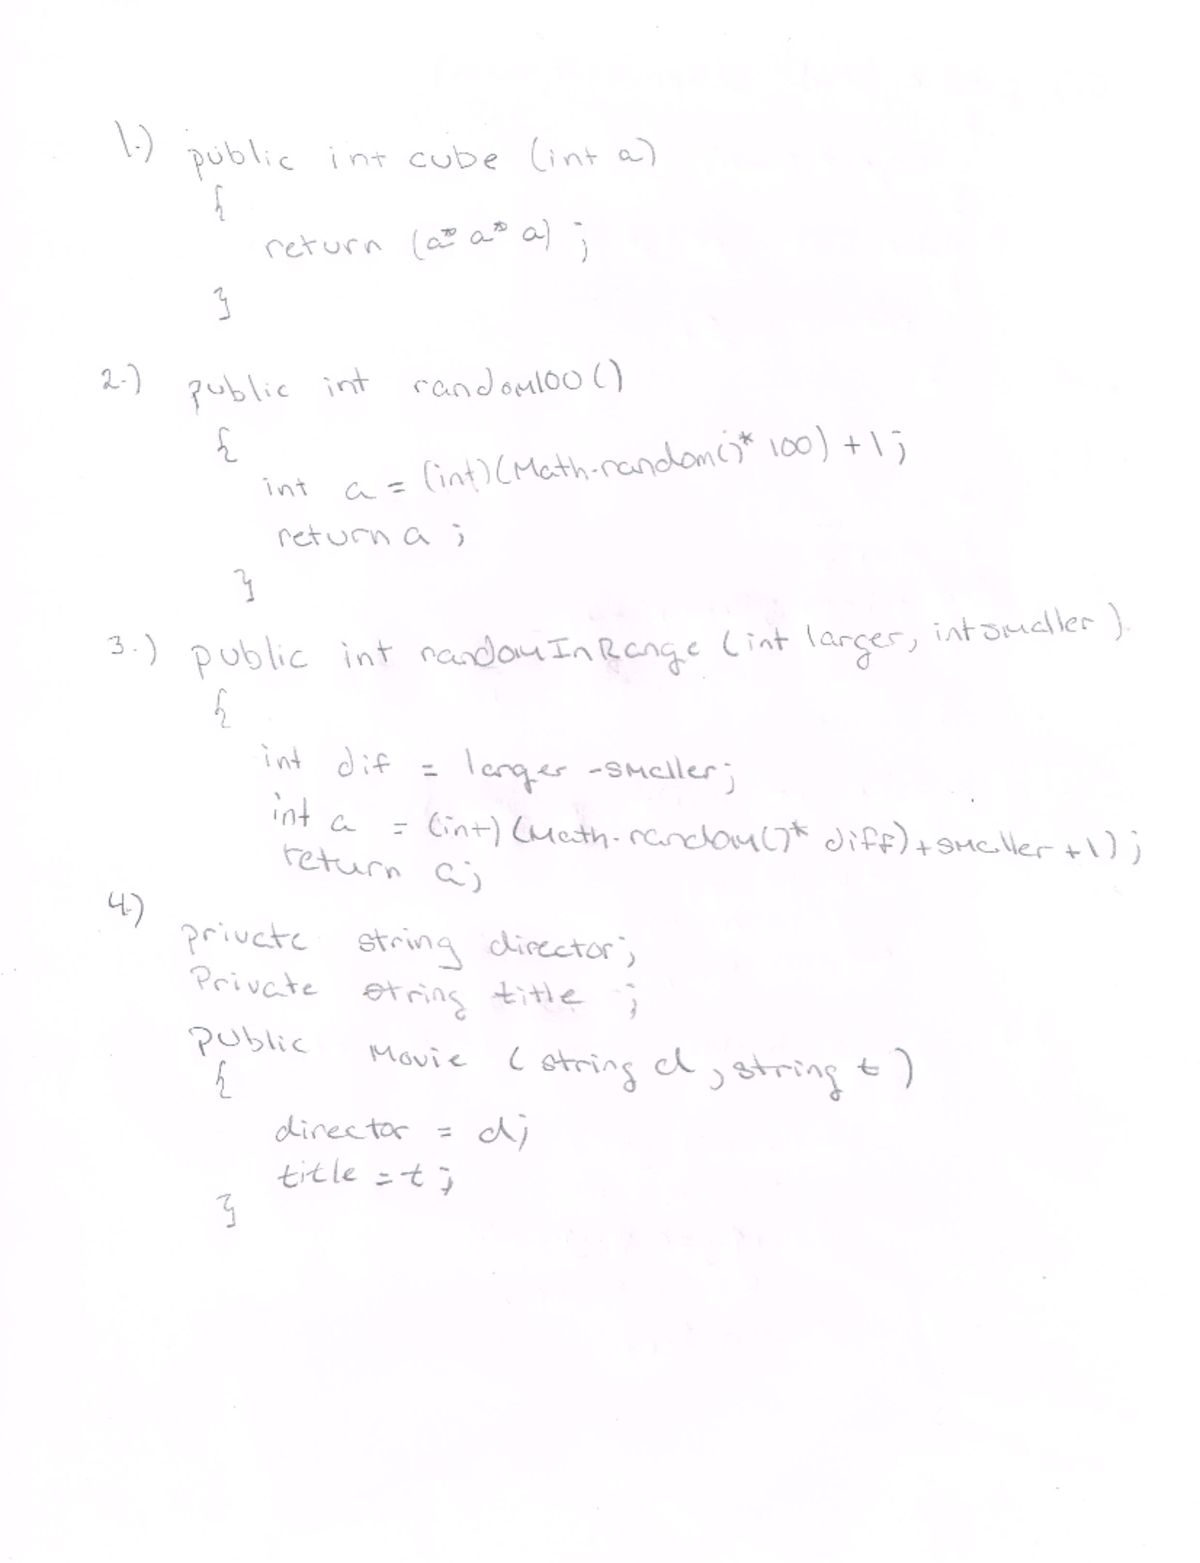 1.) public int cube (int a)
{
return (a* a* a) ;
}
2.) public int random100 ()
{
int a = (int)(Math.random()* 100) + 1 ;
return a ;
}
3.) public int randomInRange (int larger, int smaller ).
{
int dif = larger - smaller ;
int a = (int) (Math.random()* diff) + smaller + 1) ;
return a ;
4.)
private string director ;
Private string title ;
public Movie ( string d , string t )
{
director = d ;
title = t ;
}